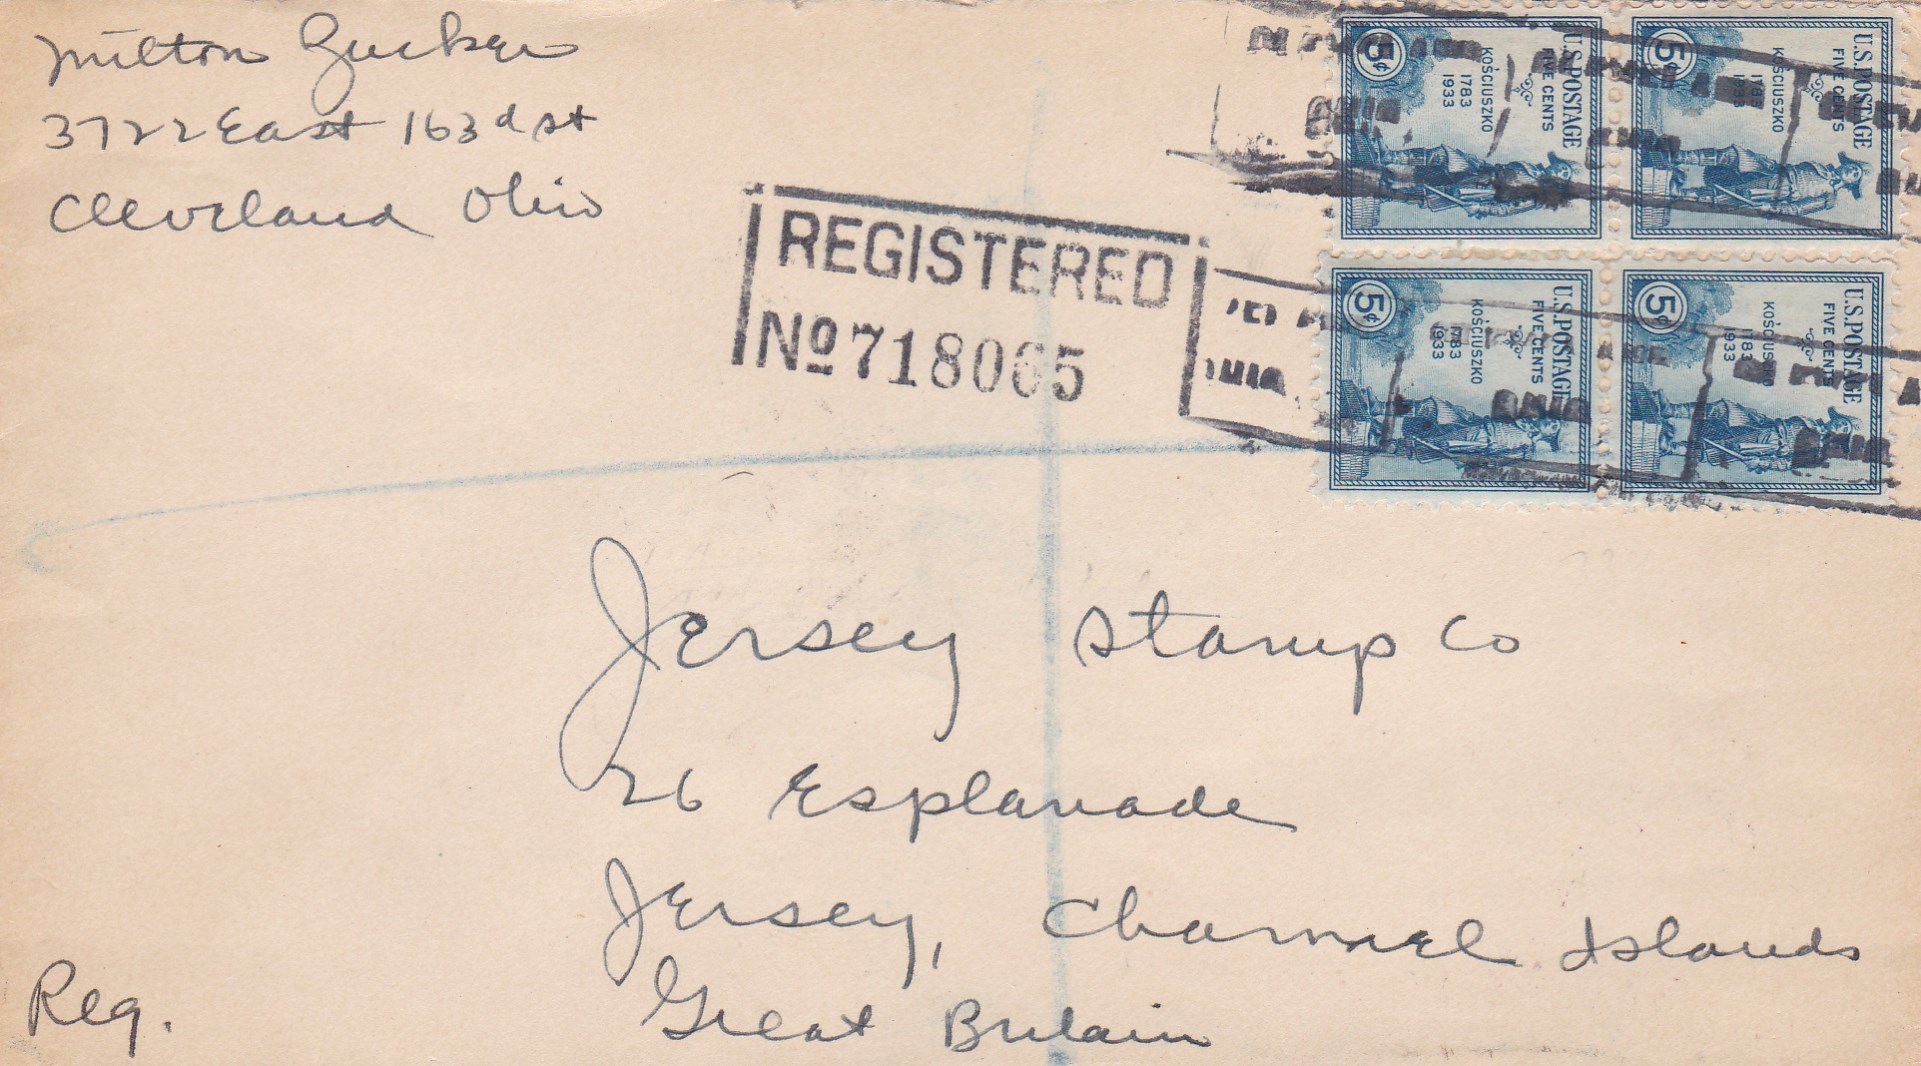 Milton Zucker
3722 East 163d st
Cleveland Ohio
REGISTERED
No 718065
U.S. POSTAGE
FIVE CENTS
KOŚCIUSZKO
1783
1933
5¢
U.S. POSTAGE
FIVE CENTS
KOŚCIUSZKO
1783
1933
5¢
U.S. POSTAGE
FIVE CENTS
KOŚCIUSZKO
1783
1933
5¢
U.S. POSTAGE
FIVE CENTS
KOŚCIUSZKO
1783
1933
5¢
OHIO
Jersey Stamp Co
26 Esplanade
Jersey, Channel Islands
Great Britain
Reg.